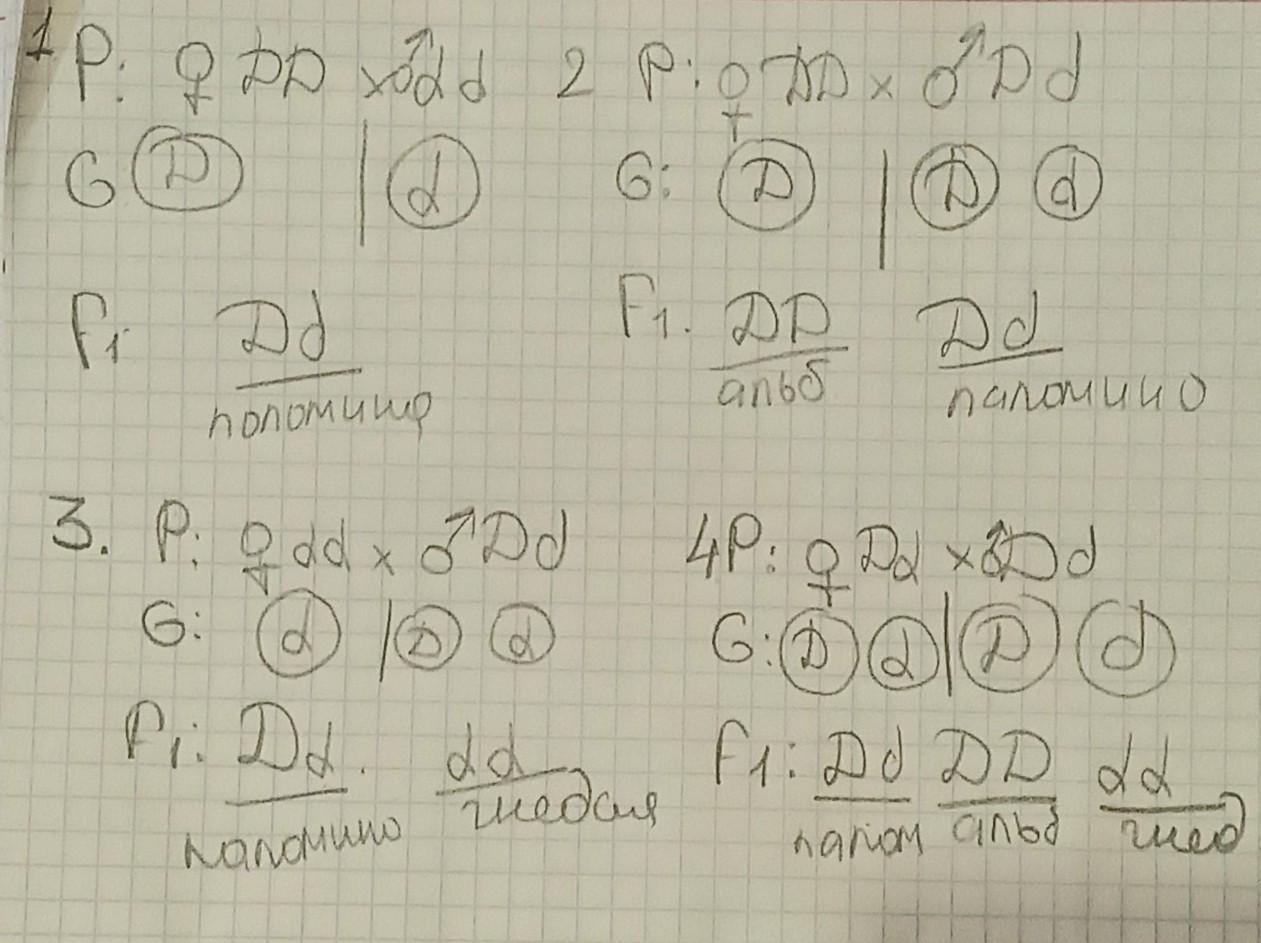 1 P: ♀ DD x ♂ dd
G (D) | (d)
F1: Dd
поломино
2 P: ♀ DD x ♂ Dd
G: (D) | (D) (d)
F1. DD Dd
альб паломино
3. P: ♀ dd x ♂ Dd
G: (d) | (D) (d)
F1: Dd. dd
паломино гнедая
4 P: ♀ Dd x ♂ Dd
G: (D) (d) | (D) (d)
F1: Dd DD dd
палом альб гнед